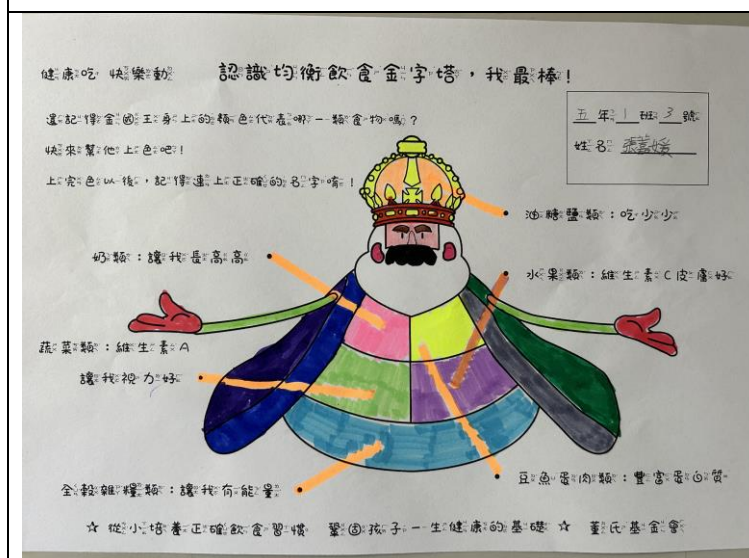 健康吃 快樂動 認識均衡飲食金字塔，我最棒！
還記得金國王身上的顏色代表哪一類食物嗎？
快來幫他上色吧！
上完色以後，記得連上正確的名字唷！
五年1班3號
姓名 張嘉媛
油糖鹽類：吃少少
奶類：讓我長高高
水果類：維生素C皮膚好
蔬菜類：維生素A
讓我視力好
豆魚蛋肉類：豐富蛋白質
全穀雜糧類：讓我有能量
☆ 從小培養正確飲食習慣 鞏固孩子一生健康的基礎 ☆ 董氏基金會